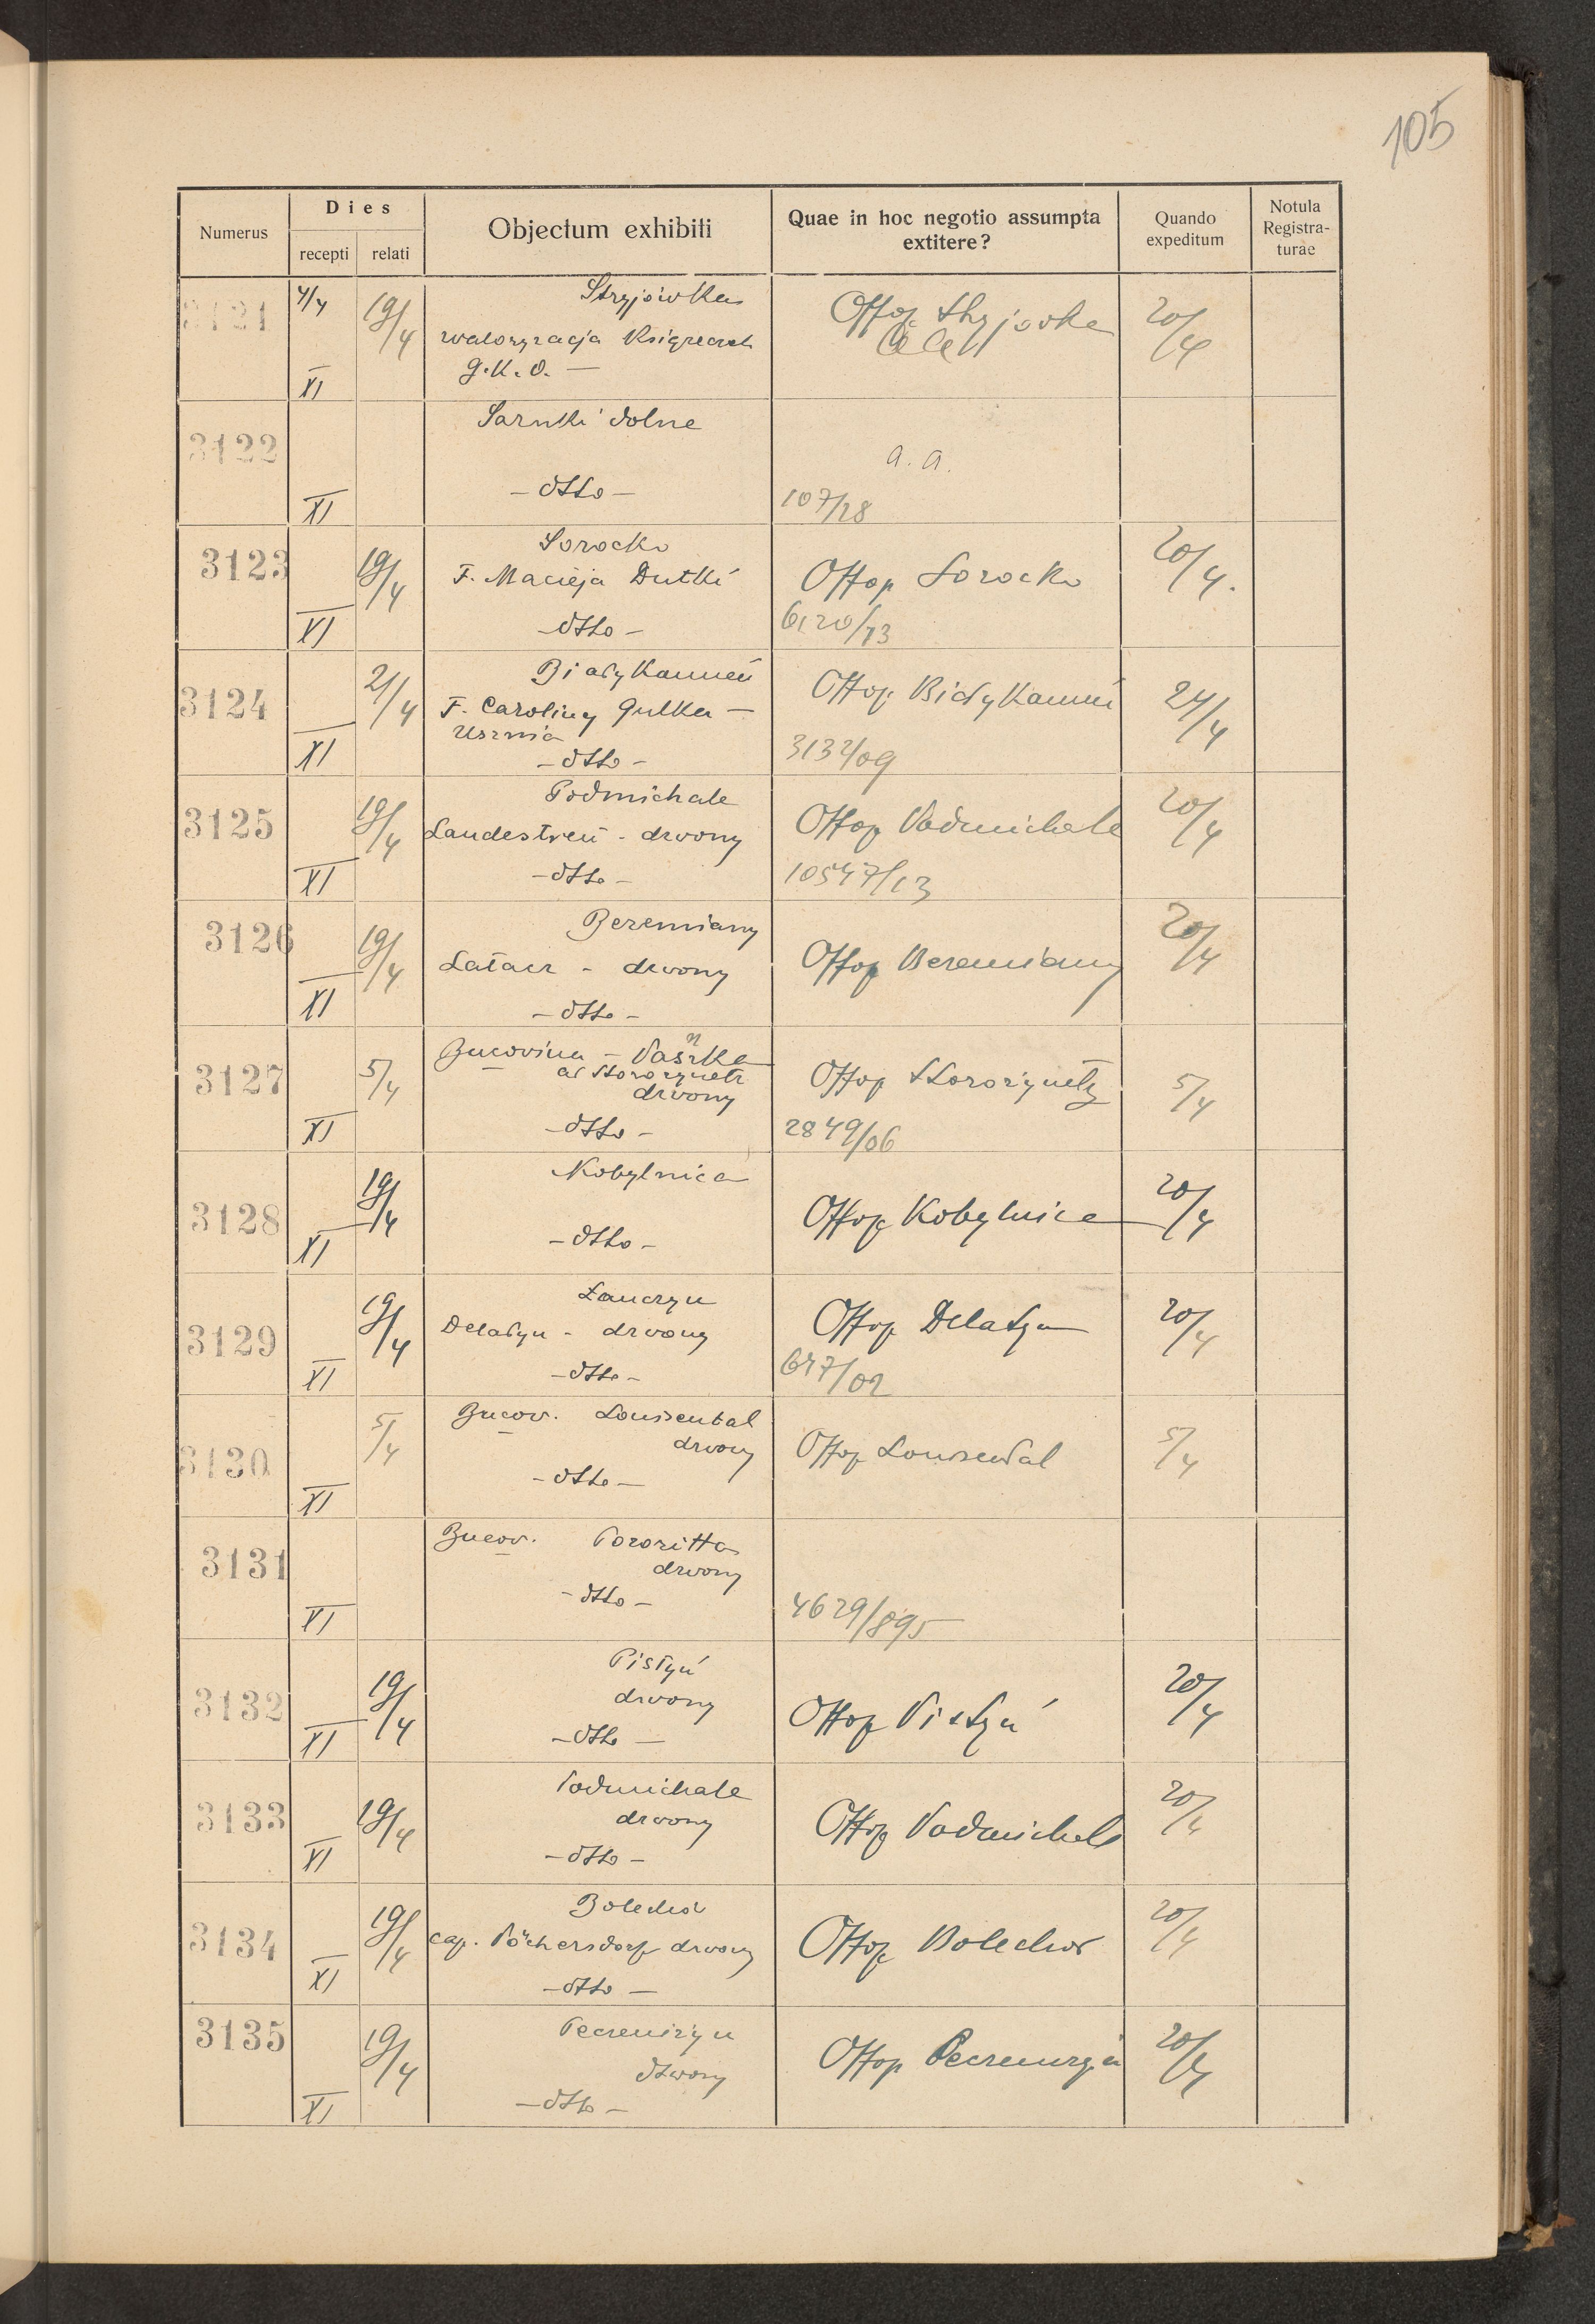 105
Numerus
Dies
recepti
relati
Objectum exhibiti
Quae in hoc negotio assumpta
extitere?
Quando
expeditum
Notula
Registra-
turae
3121
4/4
XI
19/4
Stryjówka
waloryzacja
G.K.O. —
Offop Stryjovka
20/4
3122
XI
Sarnki dolne
— dtto —
a. a.
107/28
3123
XI
19/4
Sorocko
F. Macieja Dutki
— dtto —
Offop Sorocko
6120/13
20/4.
3124
XI
21/4
Biały Kamień
F. Caroliny Gulka —
Usznia
— dtto —
Offop Biały Kamień
3132/09
24/4
3125
XI
19/4
Podmichale
Landestreu - dzwony
— dtto —
Offop Podmichale
10547/13
20/4
3126
XI
19/4
Beremiany
Latacz - dzwony
— dtto —
Offop Beremiany
20/4
3127
XI
5/4
Bucovina —
ad Storozynetz
dzwony
— dtto —
Offop Storożynetz
2849/06
5/4
3128
XI
19/4
Kobylnica
— dtto —
Offop Kobylnica
20/4
3129
XI
19/4
Łanczyn
Delatyn - dzwony
— dtto —
Offop Delatyn
647/02
20/4
3130
XI
5/4
Bucov. Louisental
dzwony
— dtto —
Offop Louisental
5/4
3131
XI
Bucov. Pozoritta
dzwony
— dtto —
4629/895
3132
XI
19/4
Pistyń
dzwony
— dtto —
Offop Pistyń
20/4
3133
XI
19/4
Podmichale
dzwony
— dtto —
Offop Podmichale
20/4
3134
XI
19/4
Bolechów
cap. Pöchersdorf dzwony
— dtto —
Offop Bolechów
20/4
3135
XI
19/4
Peczeniżyn
dzwony
— dtto —
Offop Peczeniżyn
20/4